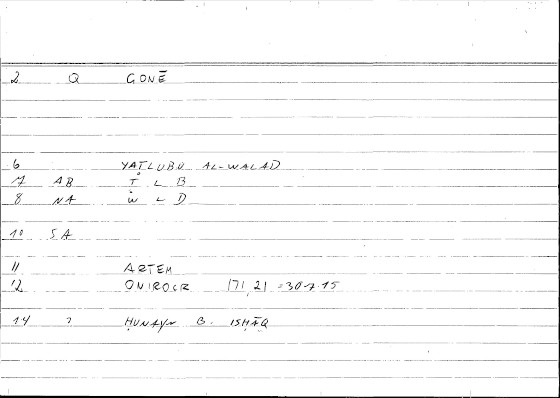 2 Q GONĒ
6 YATLUBU AL-WALAD
7 AB Ṭ L B
8 NA W L D
10 SA
11 ARTEM
12 ONIROCR 171,21 =
14 ? ḤUNAYN B. ISḤĀQ